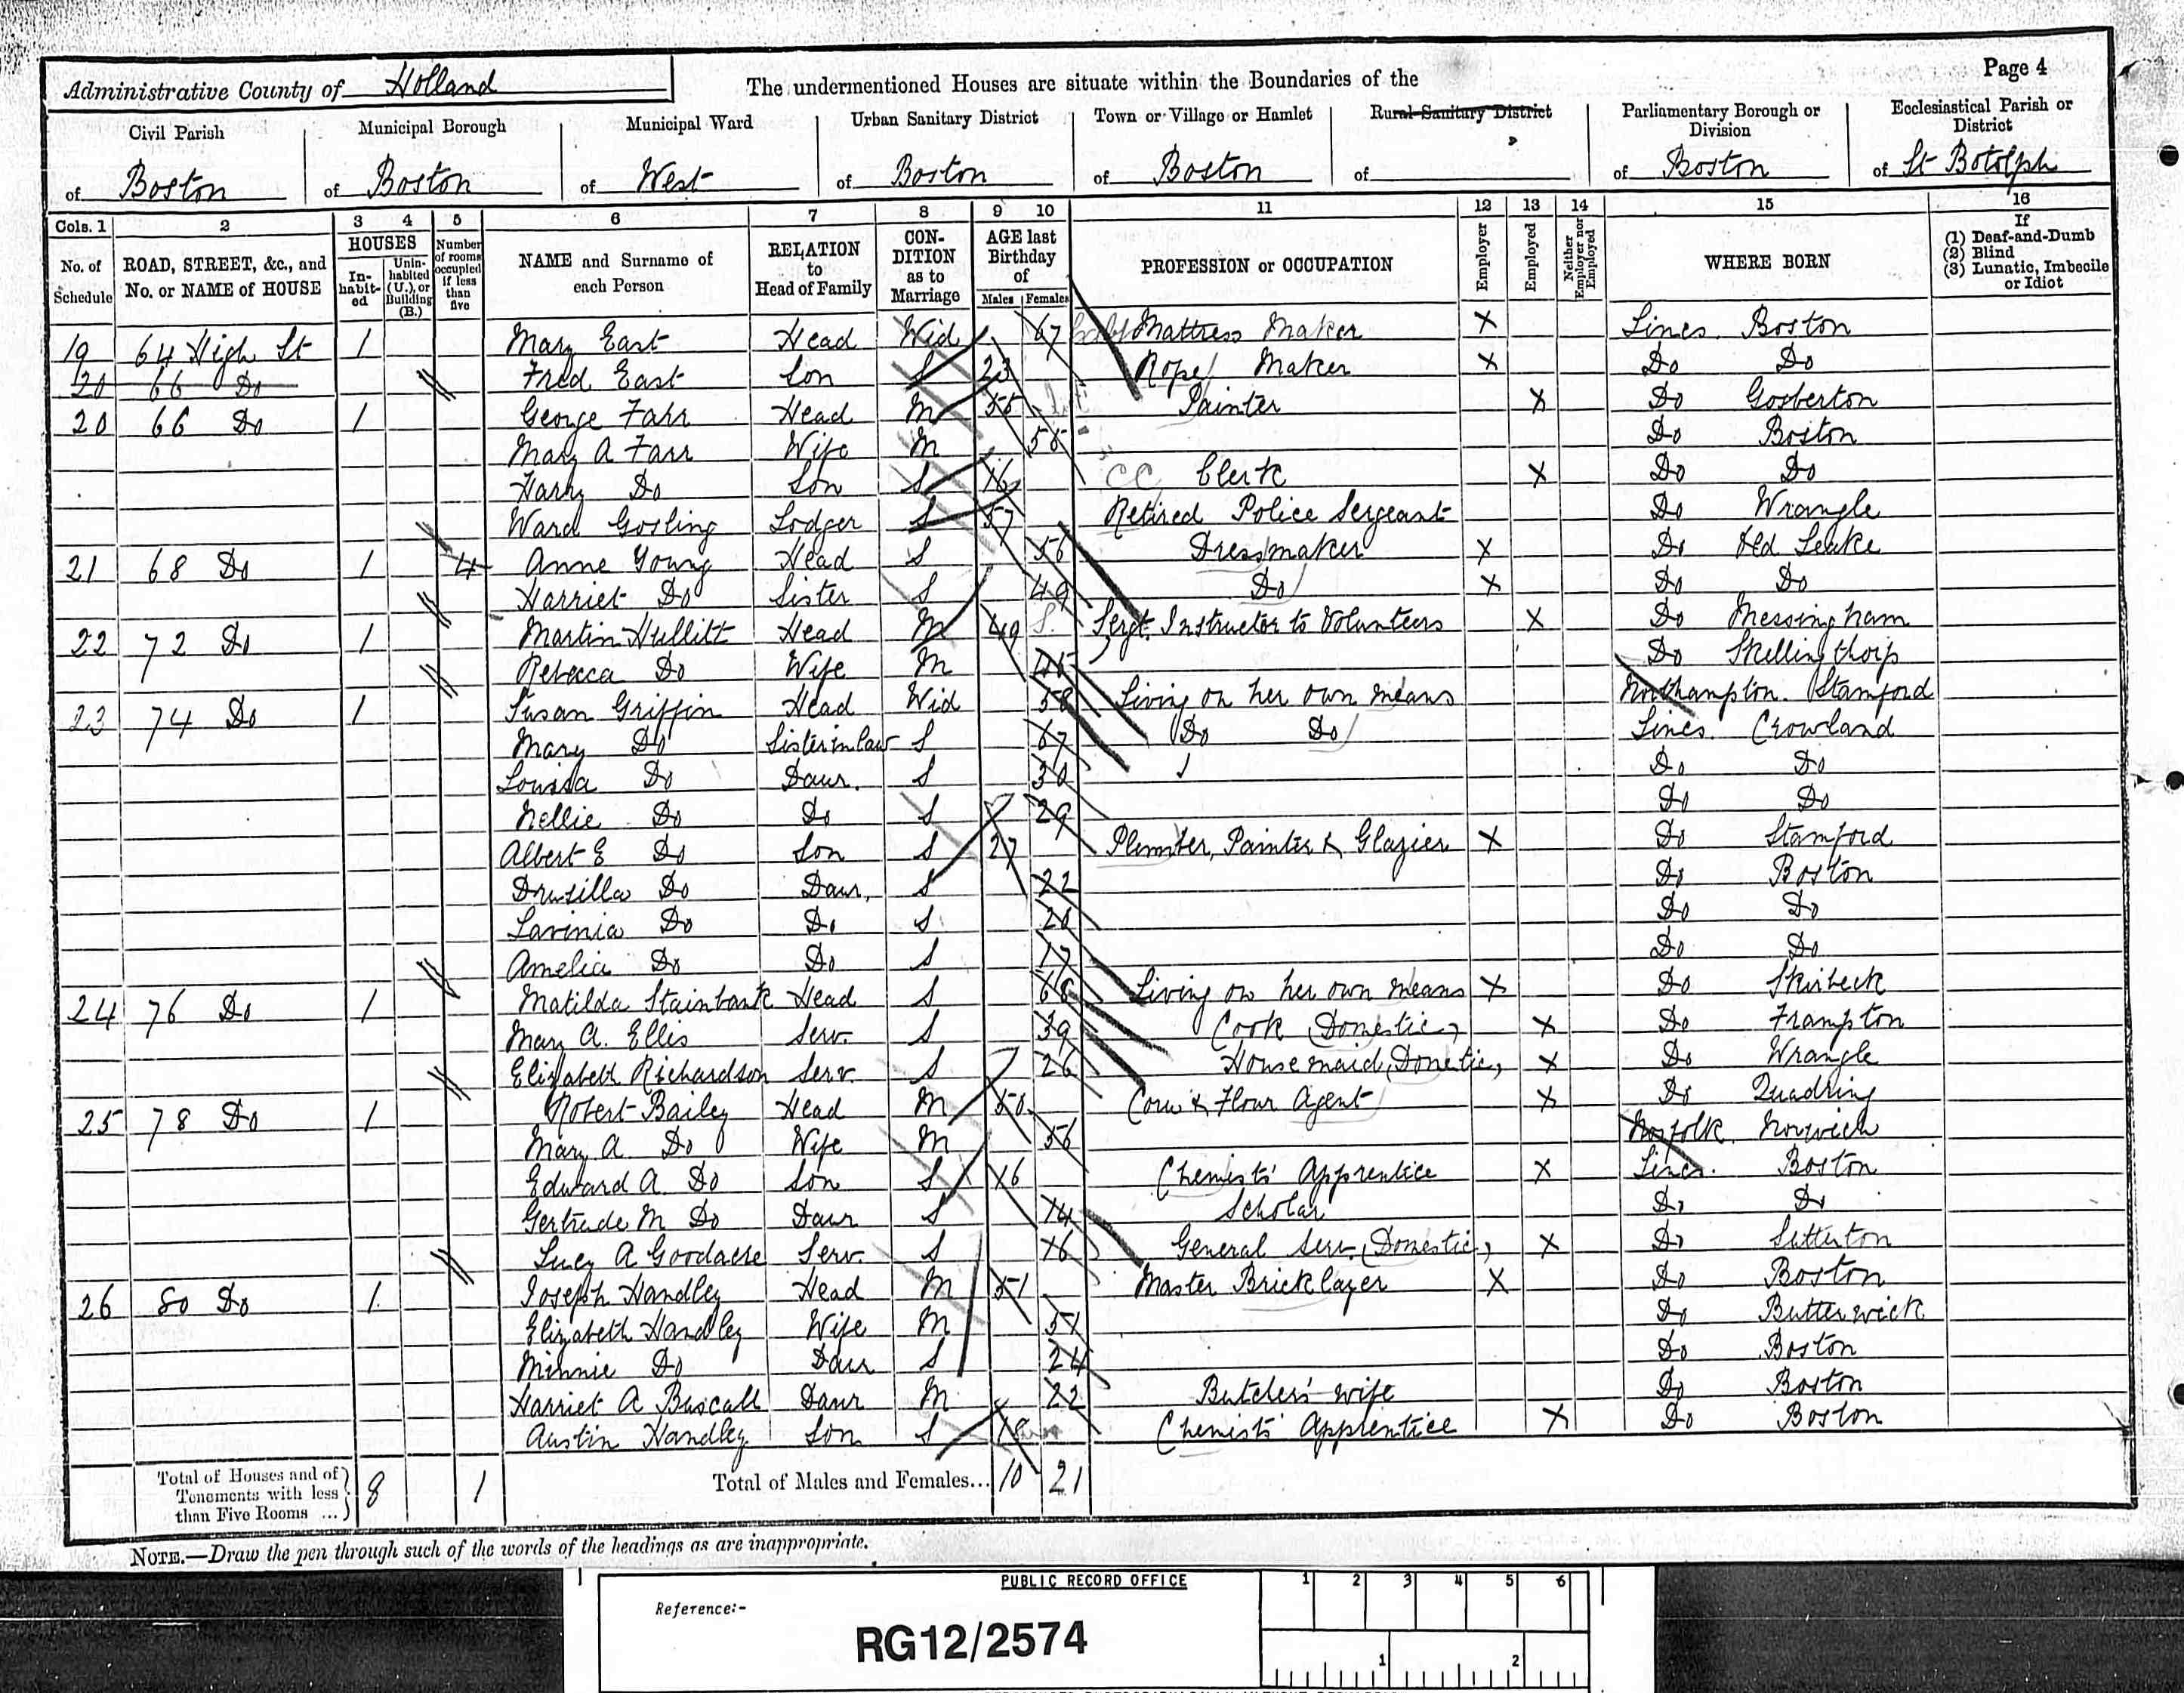 Page 4
Administrative County of Holland
The undermentioned Houses are situate within the Boundaries of the
Civil Parish of Boston
Municipal Borough of Boston
Municipal Ward of West
Urban Sanitary District of Boston
Town or Village or Hamlet of Boston
Rural Sanitary District of
Parliamentary Borough or Division of Boston
Ecclesiastical Parish or District of St Botolph
Cols. 1 2 3 4 5 6 7 8 9 10 11 12 13 14 15 16
No. of Schedule
ROAD, STREET, &c., and No. or NAME of HOUSE
HOUSES
Inhabited
Uninhabited (U.), or Building (B.)
Number of rooms occupied if less than five
NAME and Surname of each Person
RELATION to Head of Family
CONDITION as to Marriage
AGE last Birthday of
Males Females
PROFESSION or OCCUPATION
Employer
Employed
Neither Employer nor Employed
WHERE BORN
If
(1) Deaf-and-Dumb
(2) Blind
(3) Lunatic, Imbecile or Idiot
19 64 High St 1 Mary East Head Wid 67 Mattress Maker X Lincs. Boston
20 66 Do Fred East Son S 23 Rope Maker X Do Do
20 66 Do 1 George Farr Head M 55 Painter X Do Gosberton
Mary A Farr Wife M 58 Do Boston
Harry Do Son S 16 CC Clerk X Do Do
Ward Gosling Lodger S 57 Retired Police Sergeant Do Wrangle
21 68 Do 1 4 Anne Young Head S 56 Dressmaker X Do Old Leake
Harriet Do Sister S 49 Do X Do Do
22 72 Do 1 Martin Hullitt Head M 49 Sergt. Instructor to Volunteers X Do Messingham
Rebecca Do Wife M 45 Do Skellingthorp
23 74 Do 1 Susan Griffin Head Wid 58 Living on her own means Northampton. Stamford
Mary Do Sister in law S 67 Do Do Lincs. Crowland
Louisa Do Daur. S 30 Do Do
Nellie Do Do S 29 Do Do
Albert E Do Son S 27 Plumber, Painter & Glazier X Do Stamford
Drusilla Do Daur, S 22 Do Boston
Lavinia Do Do S 20 Do Do
Amelia Do Do S 17 Do Do
24 76 Do 1 Matilda Stainbank Head S 68 Living on her own means X Do Skirbeck
Mary A. Ellis Serv. S 39 Cook (Domestic) X Do Frampton
Elizabeth Richardson Serv. S 26 Housemaid (Dometic) X Do Wrangle
25 78 Do 1 Robert Bailey Head M 50 Corn & Flour Agent X Do Quadring
Mary A. Do Wife M 56 Norfolk Norwich
Edward A. Do Son S 16 Chemists' Apprentice X Lincs. Boston
Gertrude M Do Daur S 14 Scholar Do Do
Lucy A Goodacre Serv. S 16 General Serv. (Domestic) X Do Sutterton
26 80 Do 1 Joseph Handley Head M 51 Master Bricklayer X Do Boston
Elizabeth Handley Wife M 51 Do Butterwick
Minnie Do Daur S 24 Do Boston
Harriet A Buscall Daur M 22 Butcher's wife Do Boston
Austin Handley Son S 18 Chemists' Apprentice X Do Boston
Total of Houses and of Tenements with less than Five Rooms ... 8 1
Total of Males and Females... 10 21
NOTE.—Draw the pen through such of the words of the headings as are inappropriate.
PUBLIC RECORD OFFICE
1 2 3 4 5 6
Reference:-
RG12/2574
1 2